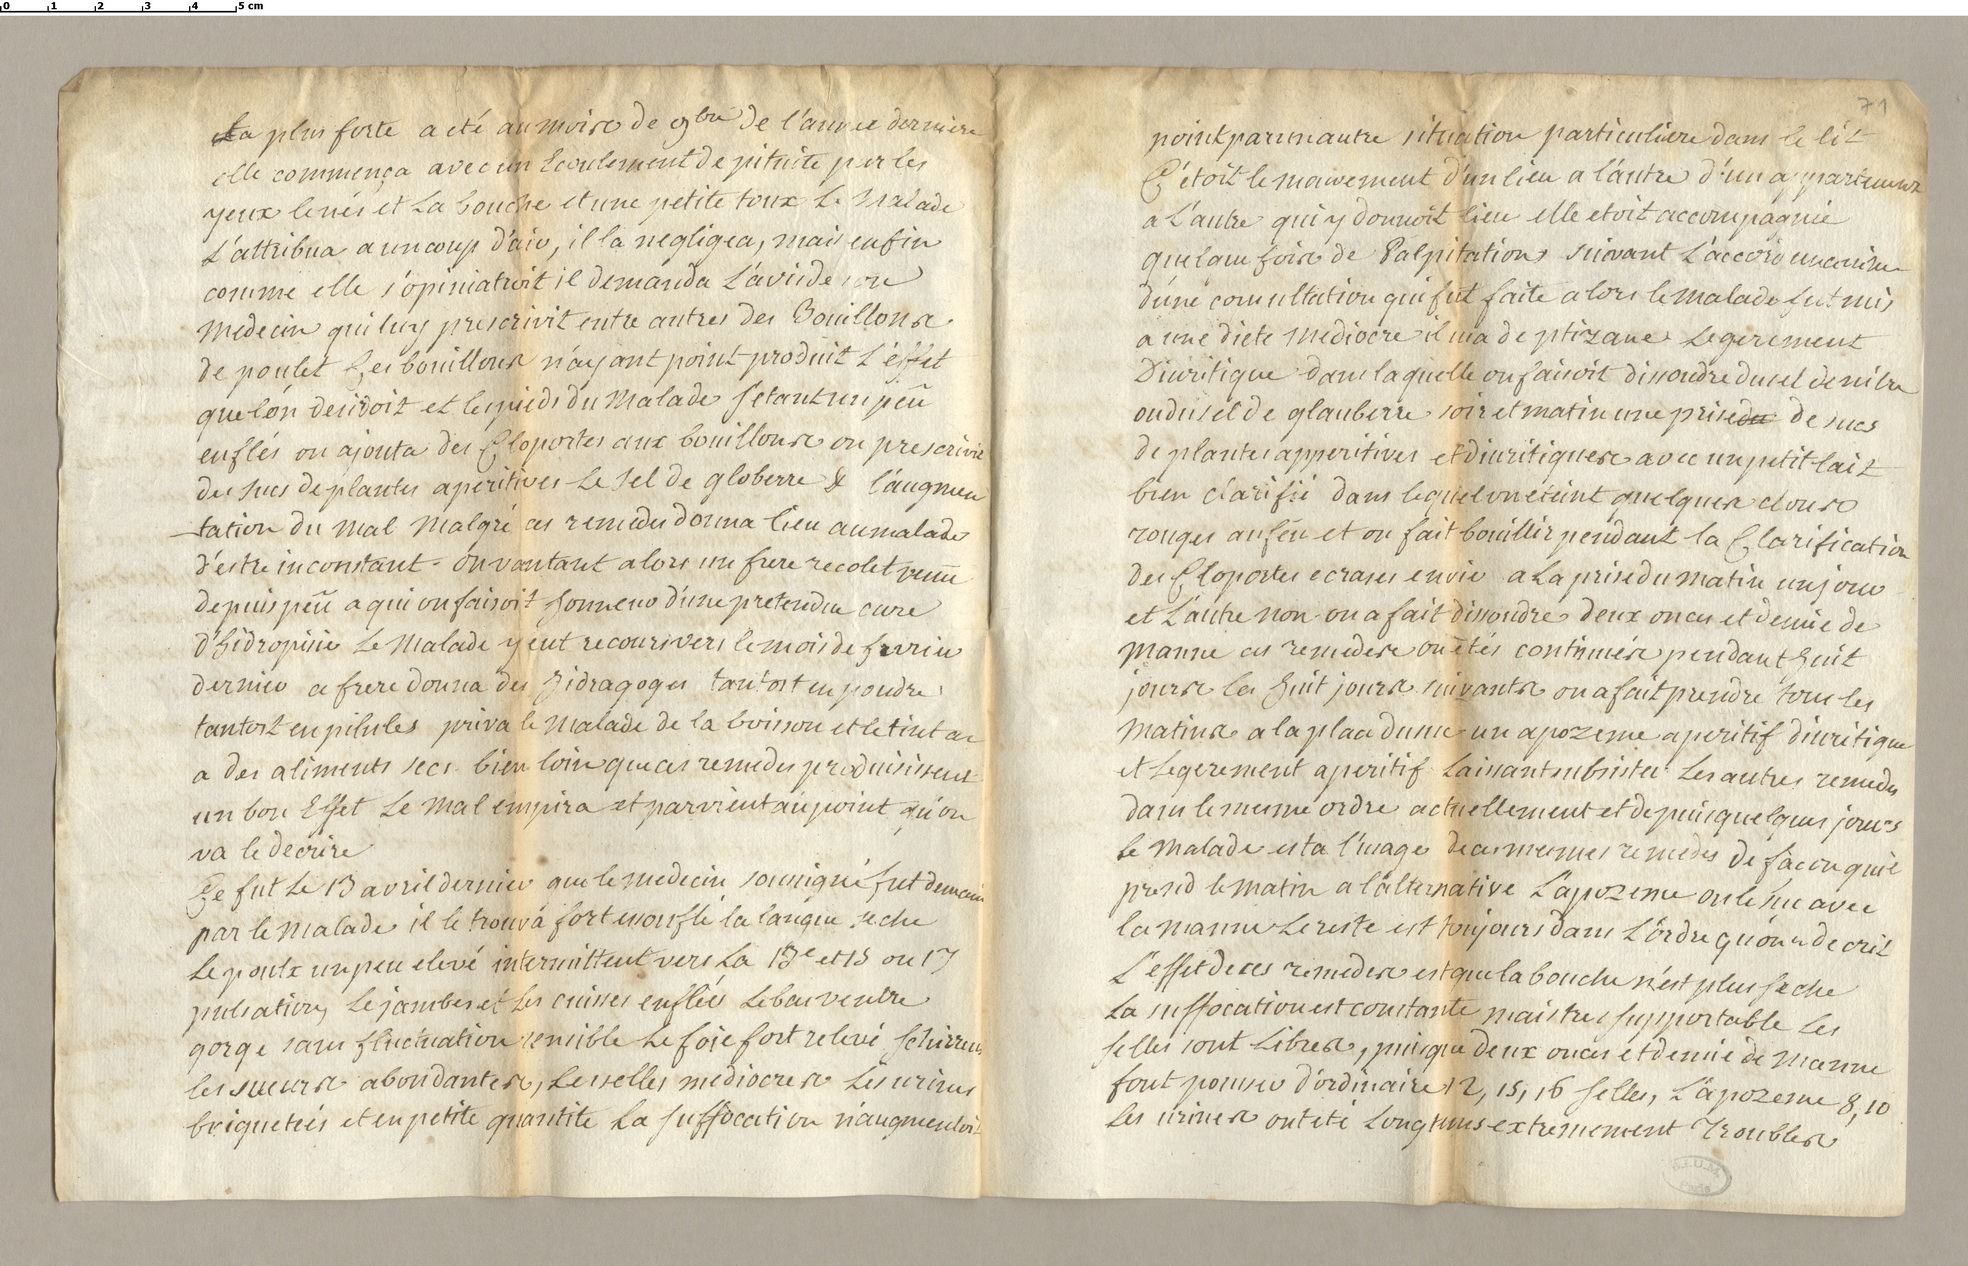 0 1 2 3 4 5 cm
La plus forte a eté au mois de 9bre de l'année derniere
elle commença avec un Ecoulement de pituite par les
yeux le nés et La bouche et une petite toux Le Malade
L'attribua a un coup d'air, il la negligea, mais enfin
comme elle s'opiniatroit il demanda L'avis de son
Medecin qui luy prescrivit entre autres des Bouillons
de poulet Ces bouillons n'ayant point produit L'effet
que l'on desiroit et les pieds du Malade s'etant un peu
enflés on ajouta des Cloportes aux bouillons on prescrivit
des sucs de plantes aperitives Le sel de globerre & l'augmen
tation du Mal Malgré ces remedes donna lieu au malade
d'estre inconstant. On vantant alors un frere recolet venu
depuis peu a qui on faisoit honneur d'une pretendue cure
d'hidropisie Le Malade y eut recours vers le mois de fevrier
dernier ce frere donna des hidragoges tantost en poudre
tantost en pilules priva le Malade de la boisson et le tint
a des aliments secs bien loin que ces remedes produisissent
un bon Effet Le Mal empira et parvient au point qu'on
va le decrire
Ce fut Le 13 avril dernier que le medecin soussigné fut demandé
par le Malade il le trouva fort essouflé la langue seche
Le poulx un peu elevé intermittent vers La 13e et 15 ou 17
pulsation, Le jambes et Les cuisses enflées Le bas ventre
gorgé sans fluctuation sensible Le foie fort relevé schirreux
les sueurs abondantes, Les selles mediocres Les urines
briquetées et en petite quantité La suffocation n'augmentoit
71
point par un autre situation particuliere dans le lit
C'étoit le mouvement d'un lieu a l'autre d'un appartement
a L'autre qui y donnoit lieu elle etoit accompagnée
quelque fois de Palpitations suivant L'accord unanime
d'une consultation qui fut faite alors le Malade fut mis
a une diete Mediocre il usa de ptizane Legerement
Diuritique dans laquelle on faisoit dissoudre du sel de nitre
ou du sel de glauberre soir et matin une prise du de sucs
de plantes apperitives et diuritiques avec un petit lait
bien clarifié dans lequel on eteint quelques clous
rouges au feu et on fait bouillir pendant la Clarification
des Cloportes ecrasés en vie a La prise du matin un jour
et L'autre non on a fait dissoudre deux onces et demie de
Manne ces remedes on etés continués pendant huit
jours les huit jours suivants on a fait prendre tous les
Matins a la place du suc un apozeme aperitif diuritique
et Legerement aperitif Laissant subsister Les autres remedes
dans le mesme ordre actuellement et depuis quelques jours
Le Malade est a l'usage de ces mesmes remedes de facon qu'il
prend le matin a l'alternative L'apozeme ou le suc avec
la manne Le reste est toujours dans L'ordre qu'on a decrit
L'effet de ces remedes est que la bouche n'est plus seche
La suffocation est constante mais tres supportable Les
selles sont Libres, puisque deux onces et demie de Manne
font pousser d'ordinaire 12, 15, 16 selles, L'apozeme 8, 10
Les urines ont eté Longtems extremement Troubles
B.I.U.M. Paris